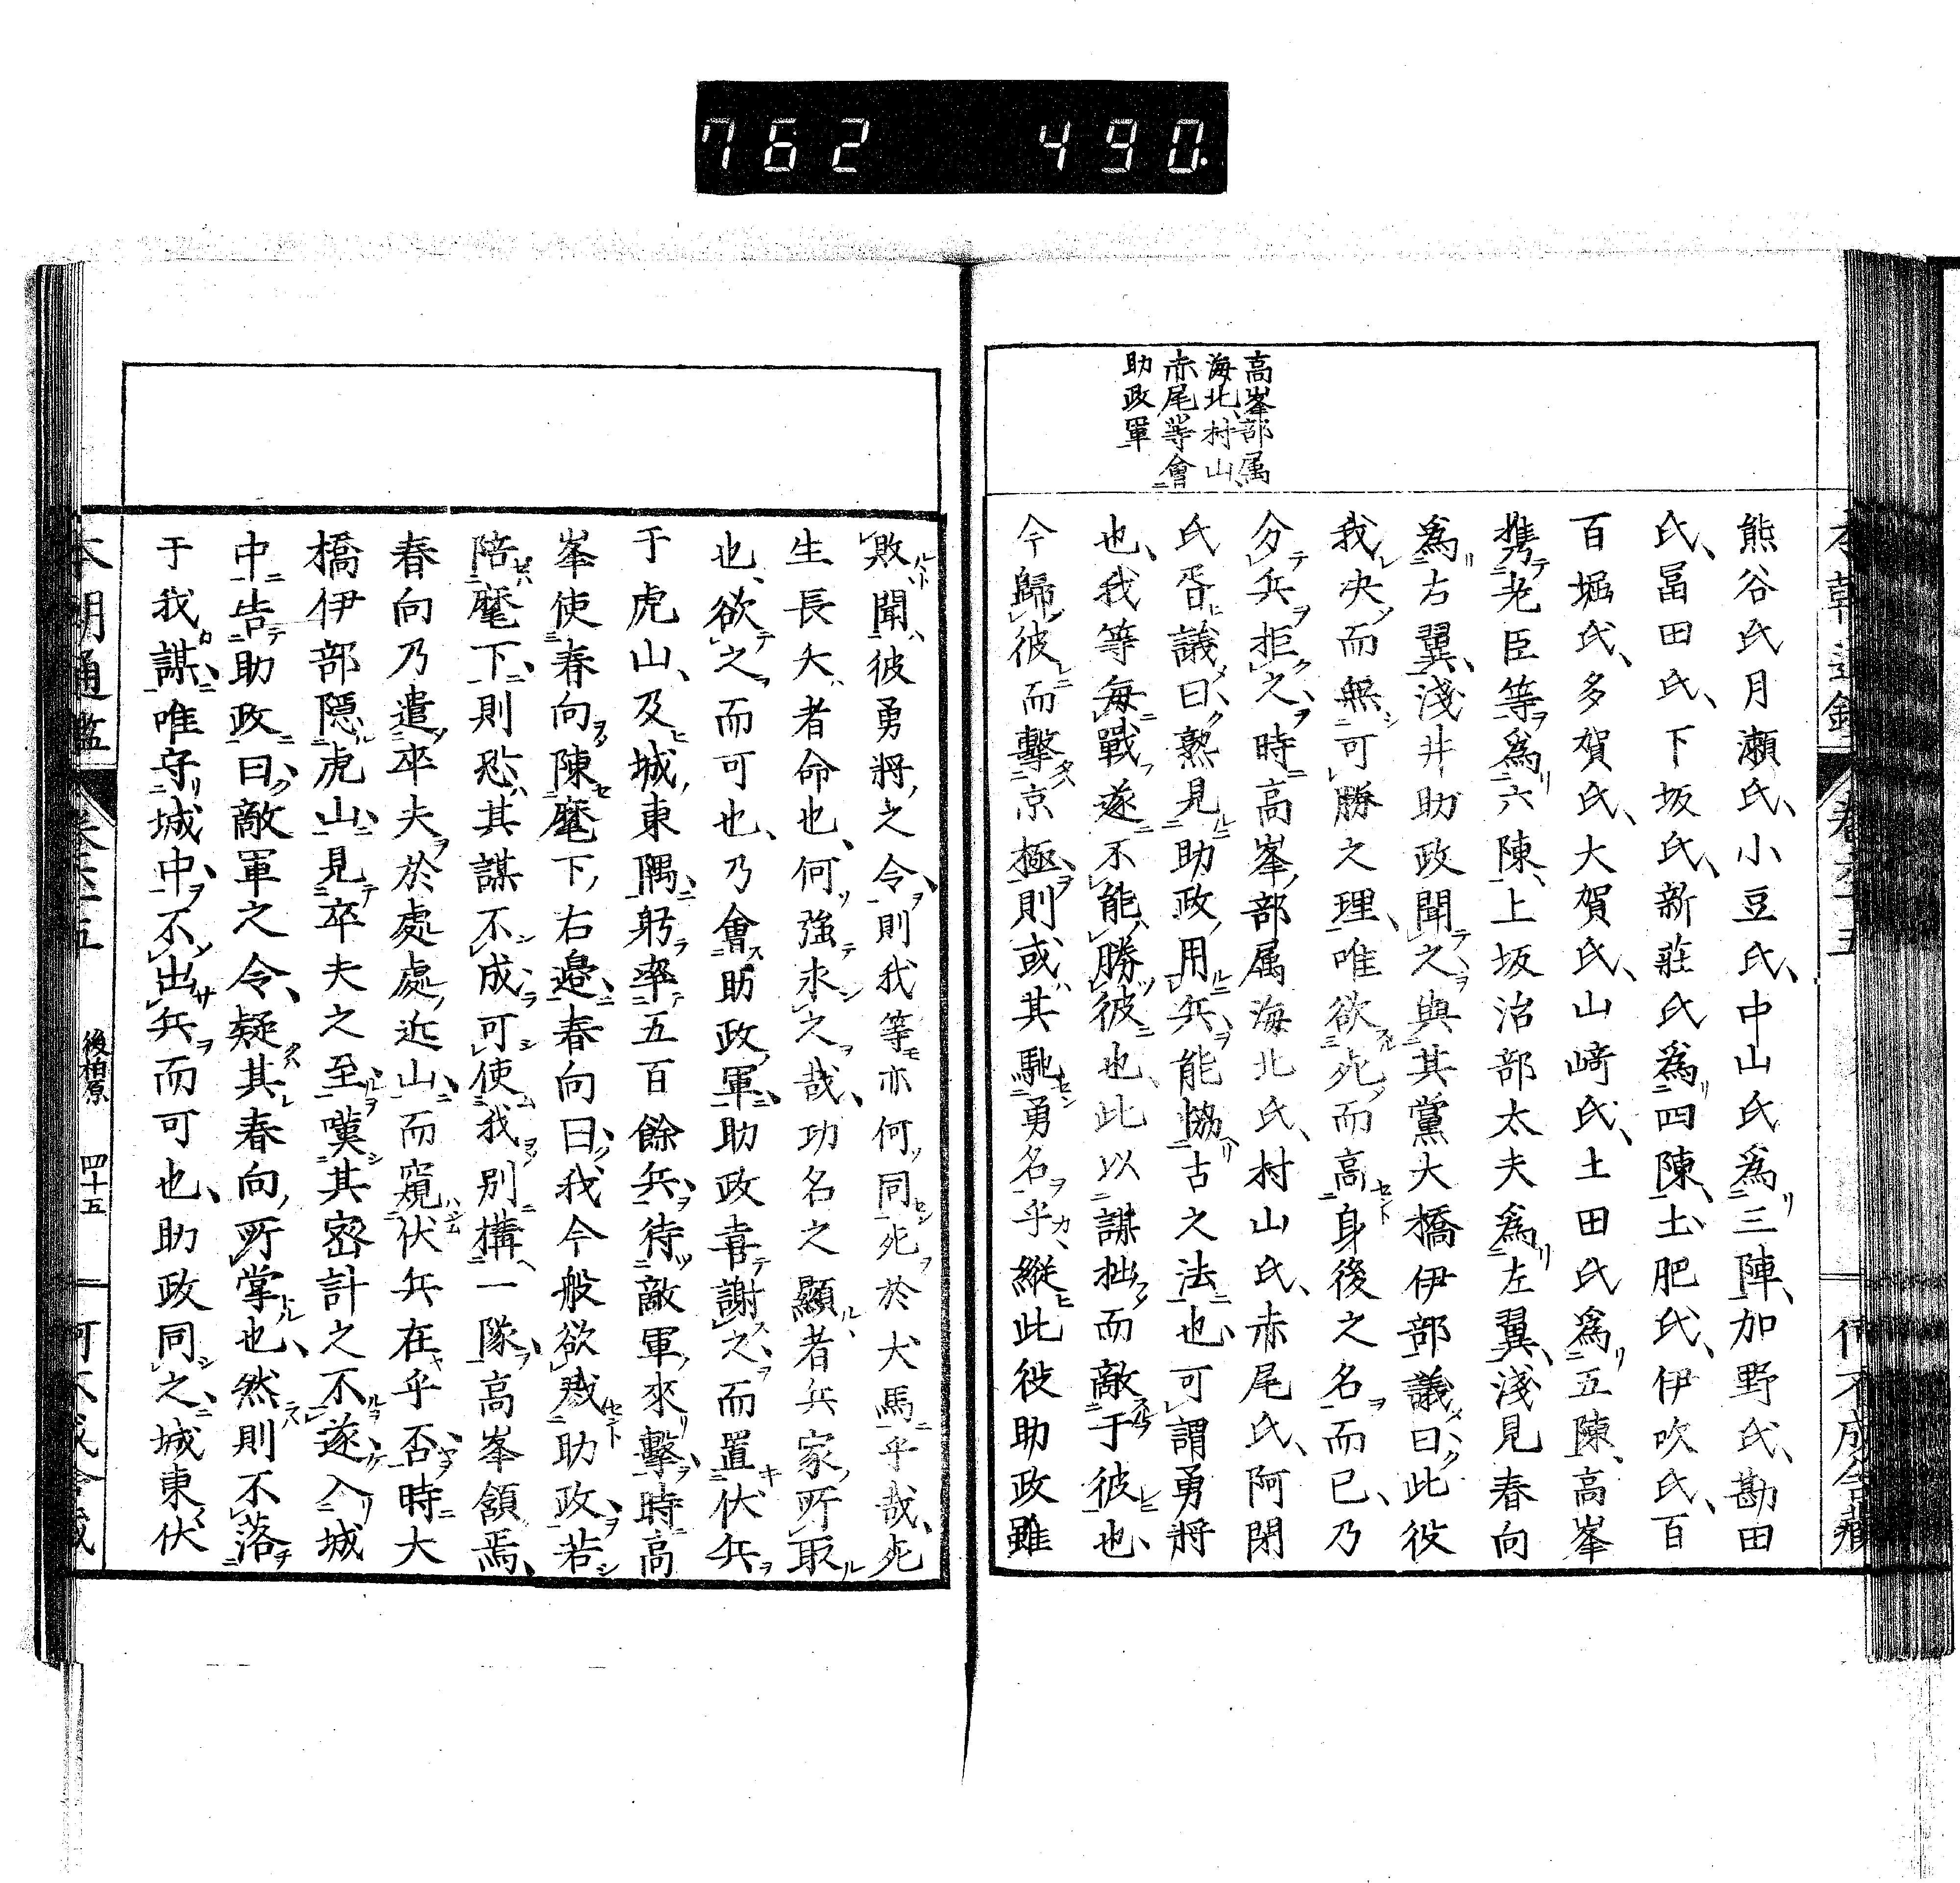 762 490
高峯部属
海北、村山、
赤尾等會
助政軍
熊谷氏月瀬氏、小豆氏、中山氏為三陣、加野氏、勘田
氏、冨田氏、下坂氏、新莊氏為四陳、土肥氏、伊吹氏、百
百堀氏、多賀氏、大賀氏、山﨑氏、土田氏為五陳、高峯
携老臣等為六陳、上坂治部太夫為左翼、淺見春向
為右翼、淺井助政聞之與其黨大橋伊部議曰、此役
我決而無可勝之理、唯欲死而高身後之名而已、乃
分兵拒之、時高峯部属海北氏、村山氏、赤尾氏、阿閉
氏胥議曰、熟見助政用兵、能恊古之法也、可謂勇將
也、我等毎戰遂不能勝彼也、此以謀拙而敵于彼也、
今歸彼而擊京極、則或其馳勇名乎、縱此役助政雖
敗聞彼勇將之令、則我等亦何同死於犬馬乎哉、死
生長矢者命也、何強求之哉、功名之顯者兵家所取
也、欲之而可也、乃會助政軍、助政喜謝之而置伏兵
于虎山、及城東隅、躬率五百餘兵、待敵軍來擊、時高
峯使春向陳麾下右邉、春向曰、我今般欲戮助政、若
陪麾下、則恐其謀不成、可使我別構一隊、高峯領焉、
春向乃遣卒夫於處處近山、而窺伏兵在乎否、時大
橋伊部隠虎山、見卒夫之至、嘆其密計之不遂、入城
中告助政曰、敵軍之令、疑其春向所掌也、然則不落
于我謀、唯守城中、不出兵而可也、助政同之、城東伏
本朝通鑑
後柏原 四十五